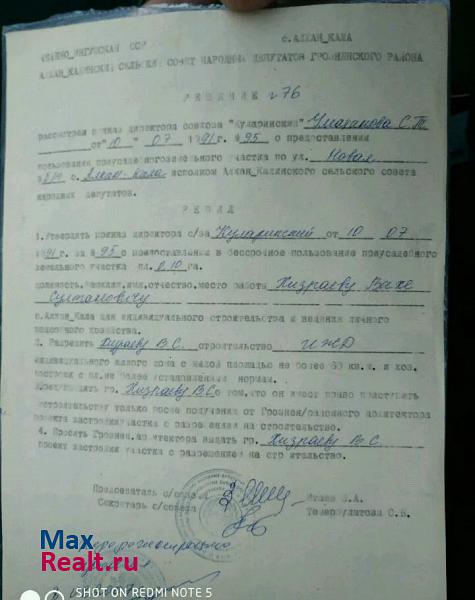 ЧЕЧЕНО_ИНГУШСКАЯ ССР с.АЛХАН_КАЛА
АЛХАН_КАЛИНСКИЙ СЕЛЬСКИЙ СОВЕТ НАРОДНЫХ ДЕПУТАТОВ ГРОЗНЕНСКОГО РАЙОНА
РЕШЕНИЕ №76
рассмотрев приказ директора совхоза "Куларинский" С.Т.
от "10" 07 1991г. №95 о предоставлении
пользования приусадебного земельного участка по ул. Новая
с. Алхан-Кала исполком Алхан_Калинского сельского совета
народных депутатов.
РЕШИЛ
1.Утвердить приказ директора с/за Куларинский от 10 07
91г. за №95 о предоставлении в бессрочное пользование приусадебного
земельного участка пл. 0,10 га.
должность, фамилия, имя, отчество, место работы Хизраеву Вахе
Султановичу
с.Алхан_Кала для индивидуального строительства и ведения личного
подсобного хозяйства.
2. Разрешить Хизраеву В.С. строительство ИЖД
индивидуального жилого дома с жилой площадью не более 60 кв.м. и хоз.
постройки с пл. не более установленных норм.
3.Предупредить гр. Хизраеву В.С. о том, что он имеет право приступить
к строительству только после получения от Грознен/районного архитектора
проекта застройки участка с разрешением на строительство.
4. Просить Грознен. архитектора выдать гр. Хизраеву В.С.
проект застройки участка с разрешением на строительство.
Председатель с/совета В.А.
Секретарь с/совета Темирбулатова С.Б.
Max
Realt.ru
SHOT ON REDMI NOTE 5